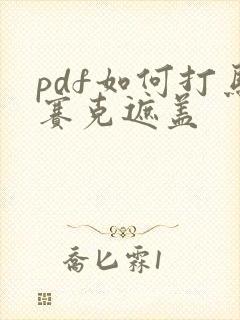 pdf如何打马
赛克遮盖
乔匕霖1